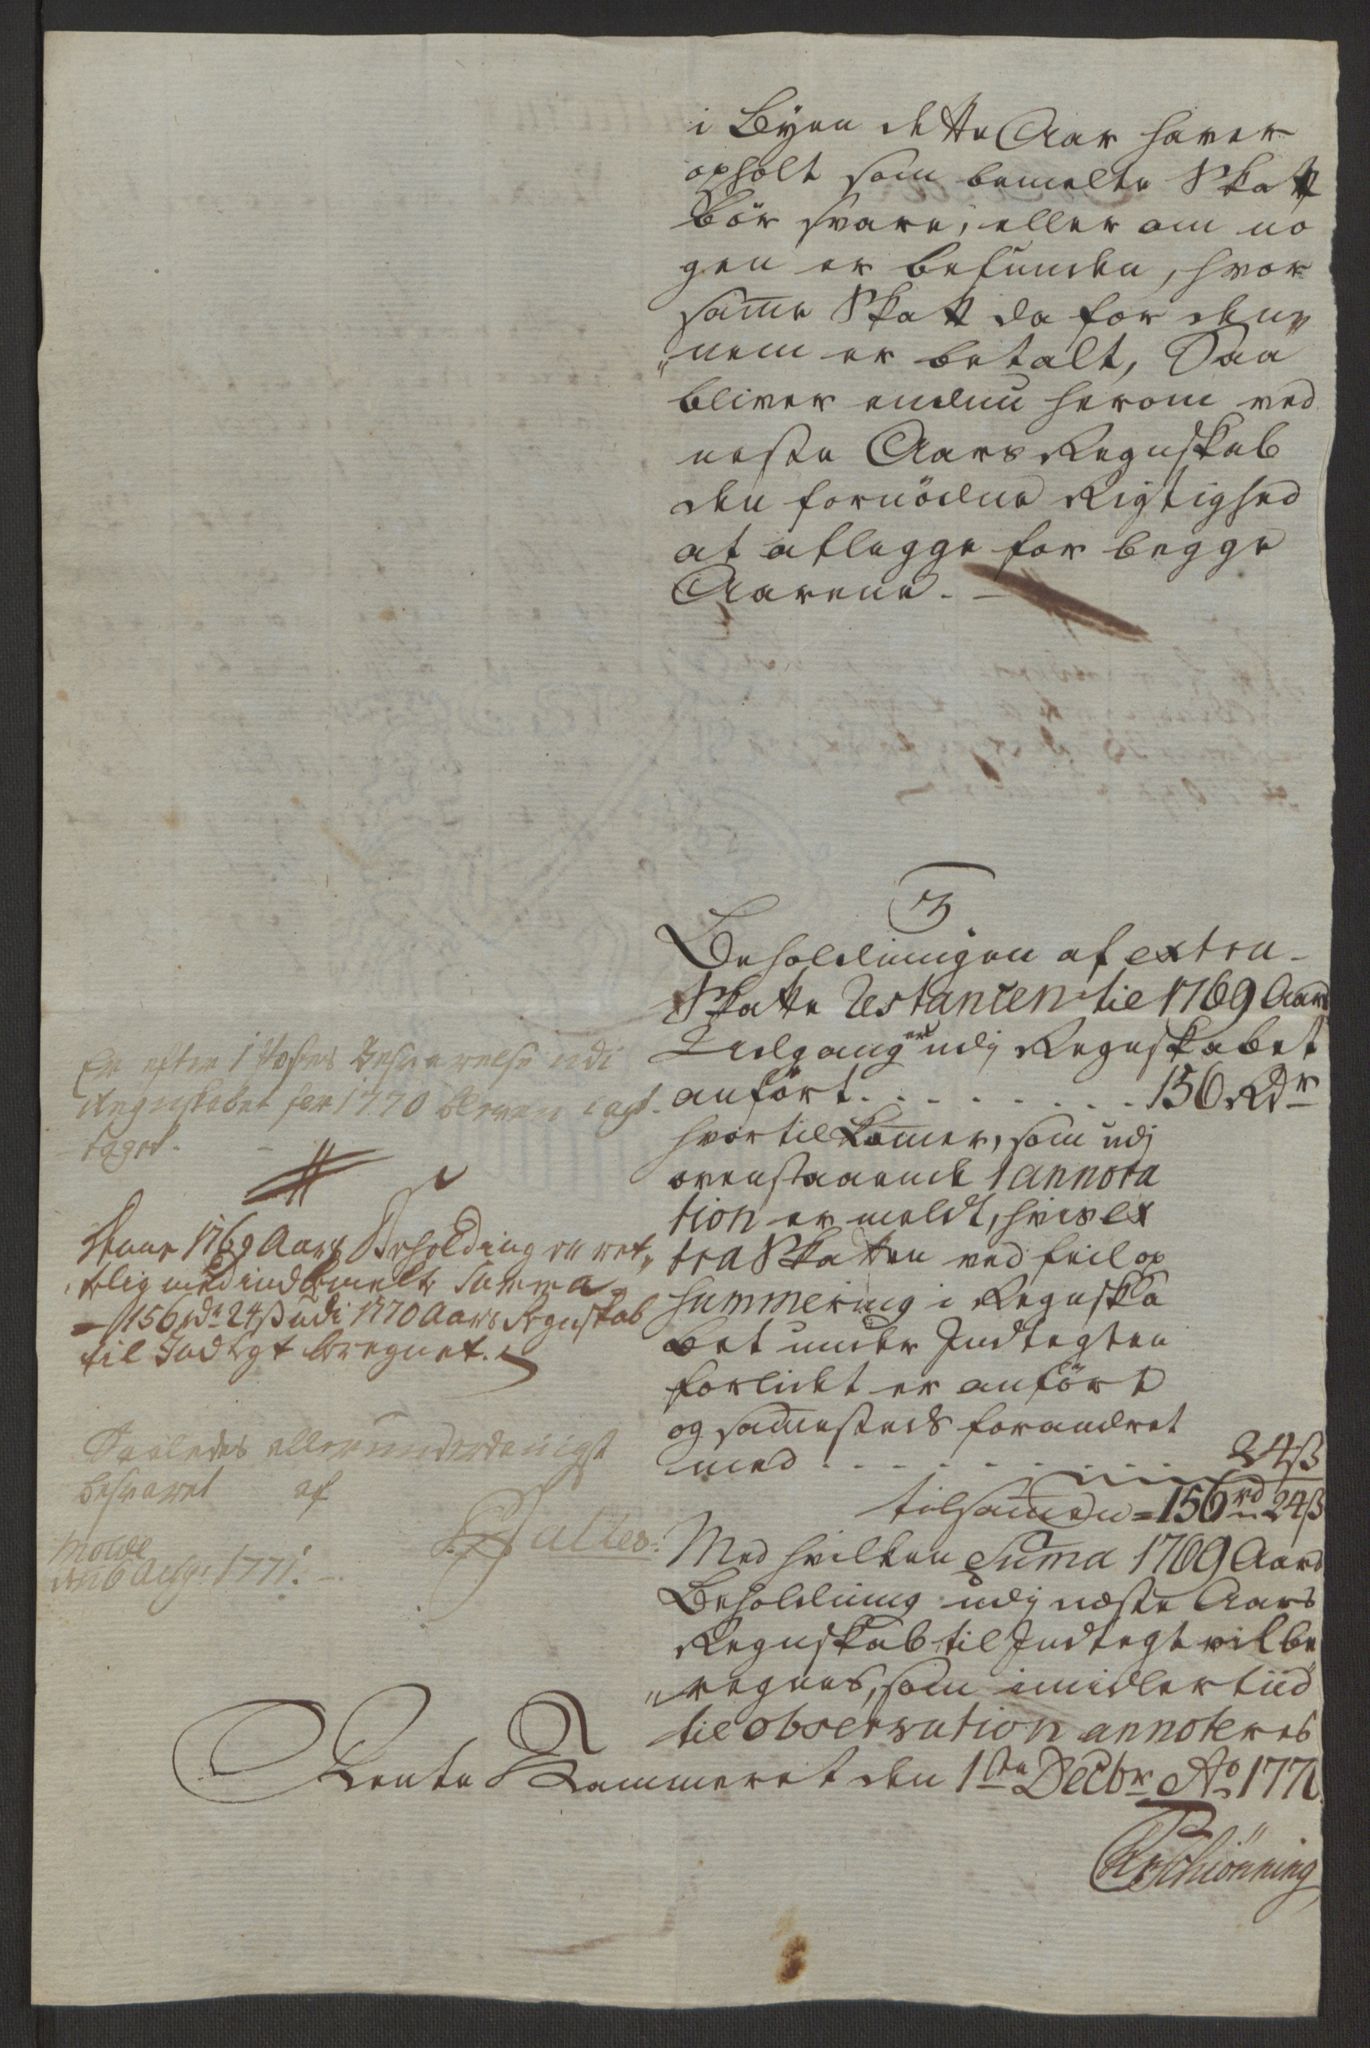 i Byen dette Aar haver
opholt som bemelte Skatt
bör svare, eller om no
gen er befunden, hvor
samme Skatt da for den„
„nem er betalt, Saa
bliver endnu herom ved
neste Aars Regnskab
den fornödne Rigtighed
at aflegge for begge
Aarene. —
3
Beholdningen af extra-
Skatte Restancen til 1769 Aars
Udgang er udj Regnskabet
anfört . . . . . . . . . 156 Rdr
hvortil komer, som udj
ovenstaaende 1 annota
tion er meldt, hvis ex
tra Skatten ved feil op
summering i Regnska
bet under Indtegten
forlidet er anfört
og sammesteds forandret
med . . . . . . . . 24ß
tilsamen = 156 rd 24ß
Med hvilken Suma 1769 Aars
Beholdning udj næste Aars
Regnskab til Indtegt vil be
„regnes, som imidlertiid
til observation annoteres
Rente Kammeret den 1ste Decbr Ao 1770.
Schiönning
Er efter 1 Posts Besvarelse udi
Regnskabet for 1770 bleven iagt-
taget. —
Staar 1769 Aars Beholding en ret„
„telig med indbemelte Summa
- 156 rdr 24ß udi 1770 Aars Regnskab
til Indtegt beregnet.
Saaledes allerunderdanigst
besvaret af
Molde
den 6 Aug: 1771.